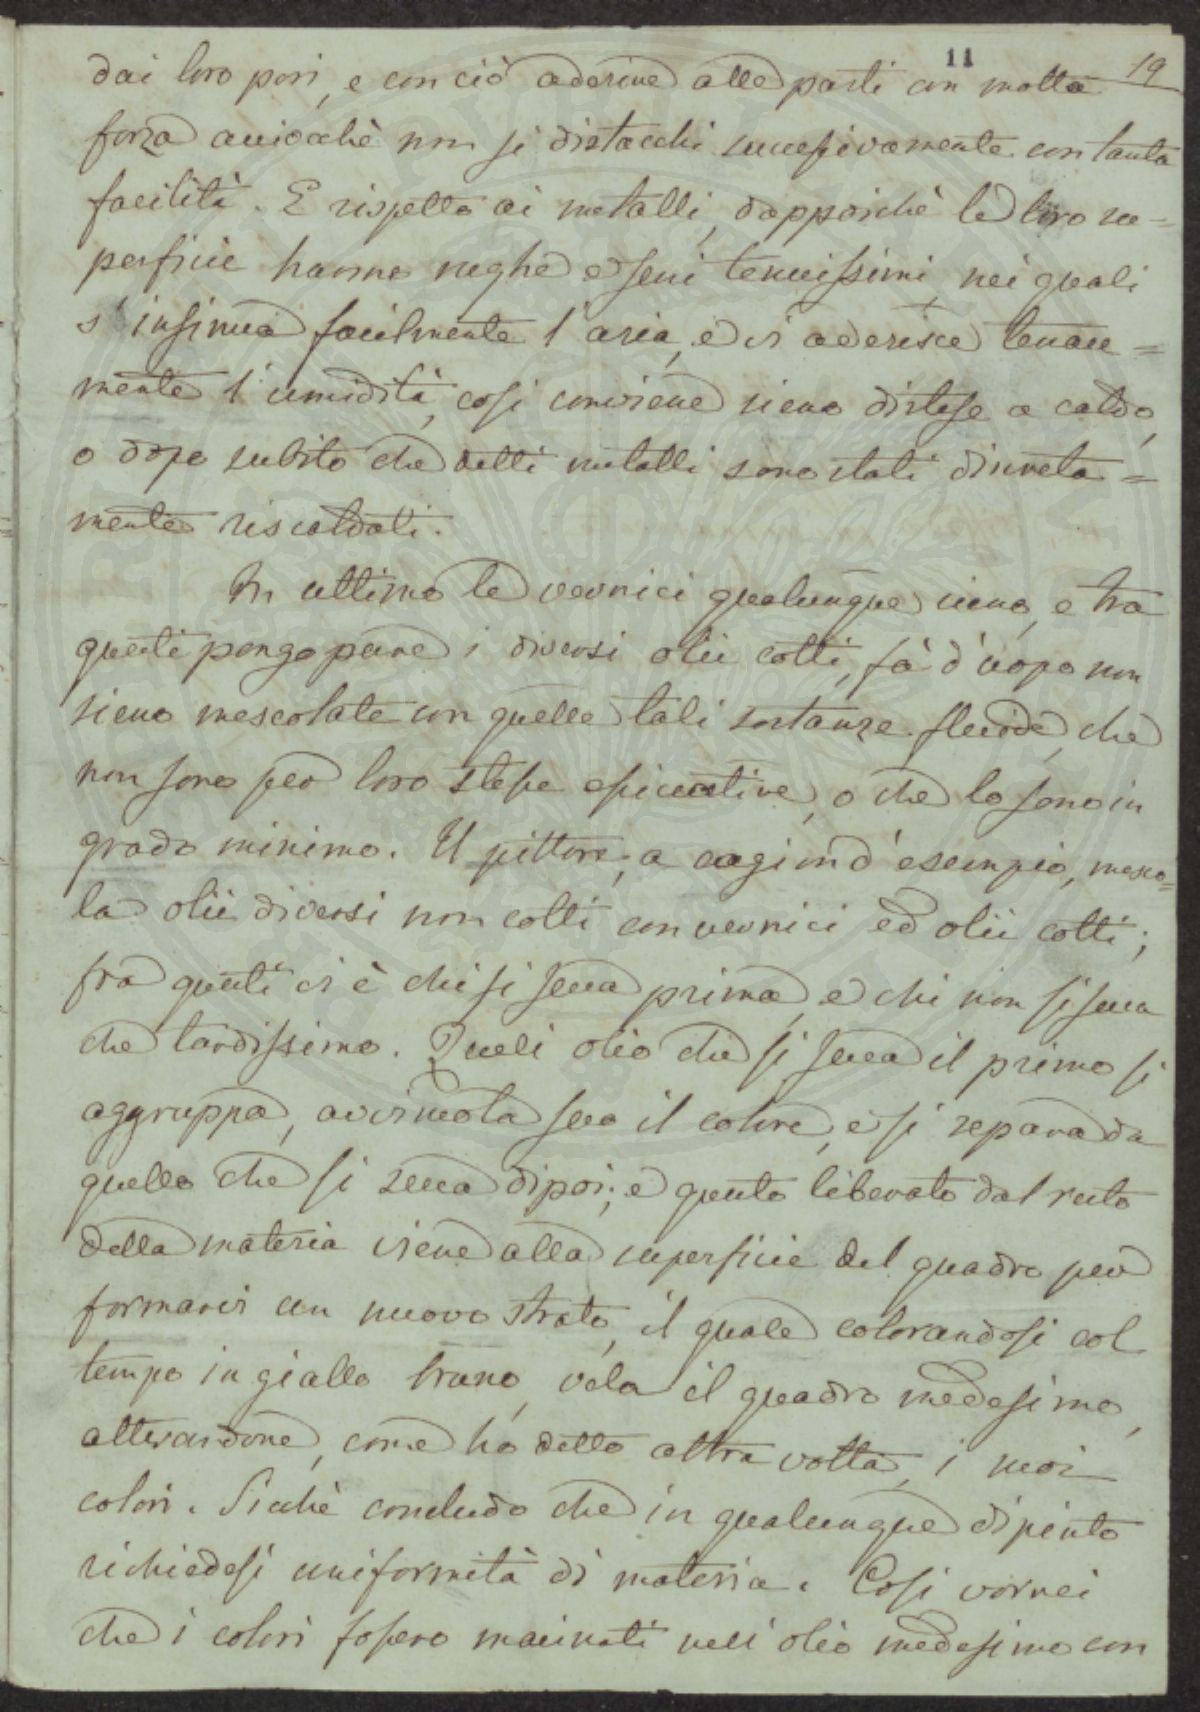 11 19
dai loro pori, e con ciò aderire alle parti con molta
forza acciocchè non si distacchi successivamente con tanta
facilità. E rispetto ai metalli, dappoichè le loro su=
perficie hanno rughe e seni tenuissimi nei quali
s'insinua facilmente l'aria, e vi aderisce tenace=
mente l'umidità, così conviene sieno distese a caldo,
o dopo subito che detti metalli sono stati discreta=
mente riscaldati.
In ultimo le vernici qualunque sieno, e tra
questi pongo pure i diversi olii cotti, fà d'uopo non
sieno mescolate con quelle tali sostanze fluide, che
non sono per loro stesse essiccative, o che lo sono in
grado minimo. Il pittore, a cagion d'esempio, mesco=
la olii diversi non cotti con vernici ed olii cotti;
fra questi vi è chi si secca prima, e chi non si secca
che tardissimo. Quell'olio che si secca il primo si
aggruppa, avvincola seco il colore, e si separa da
quello che si secca dipoi; e questo liberato dal resto
della materia viene alla superficie del quadro per
formarvi un nuovo strato, il quale colorandosi col
tempo in giallo bruno, vela il quadro medesimo,
alterandone, come ho detto altra volta, i suoi
colori. Sicchè concludo che in qualunque dipinto
richiedesi uniformità di materia. Così vorrei
che i colori fossero macinati nell'olio medesimo con